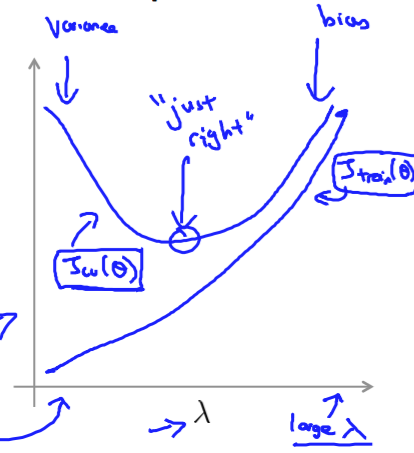 Variance
bias
"just
right"
J train(θ)
J cv(θ)
λ
large λ